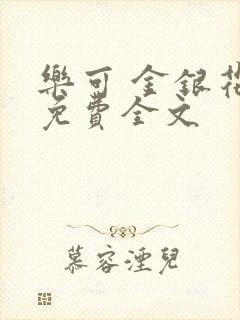 樂可 金銀花
免費全文
慕容湮兒